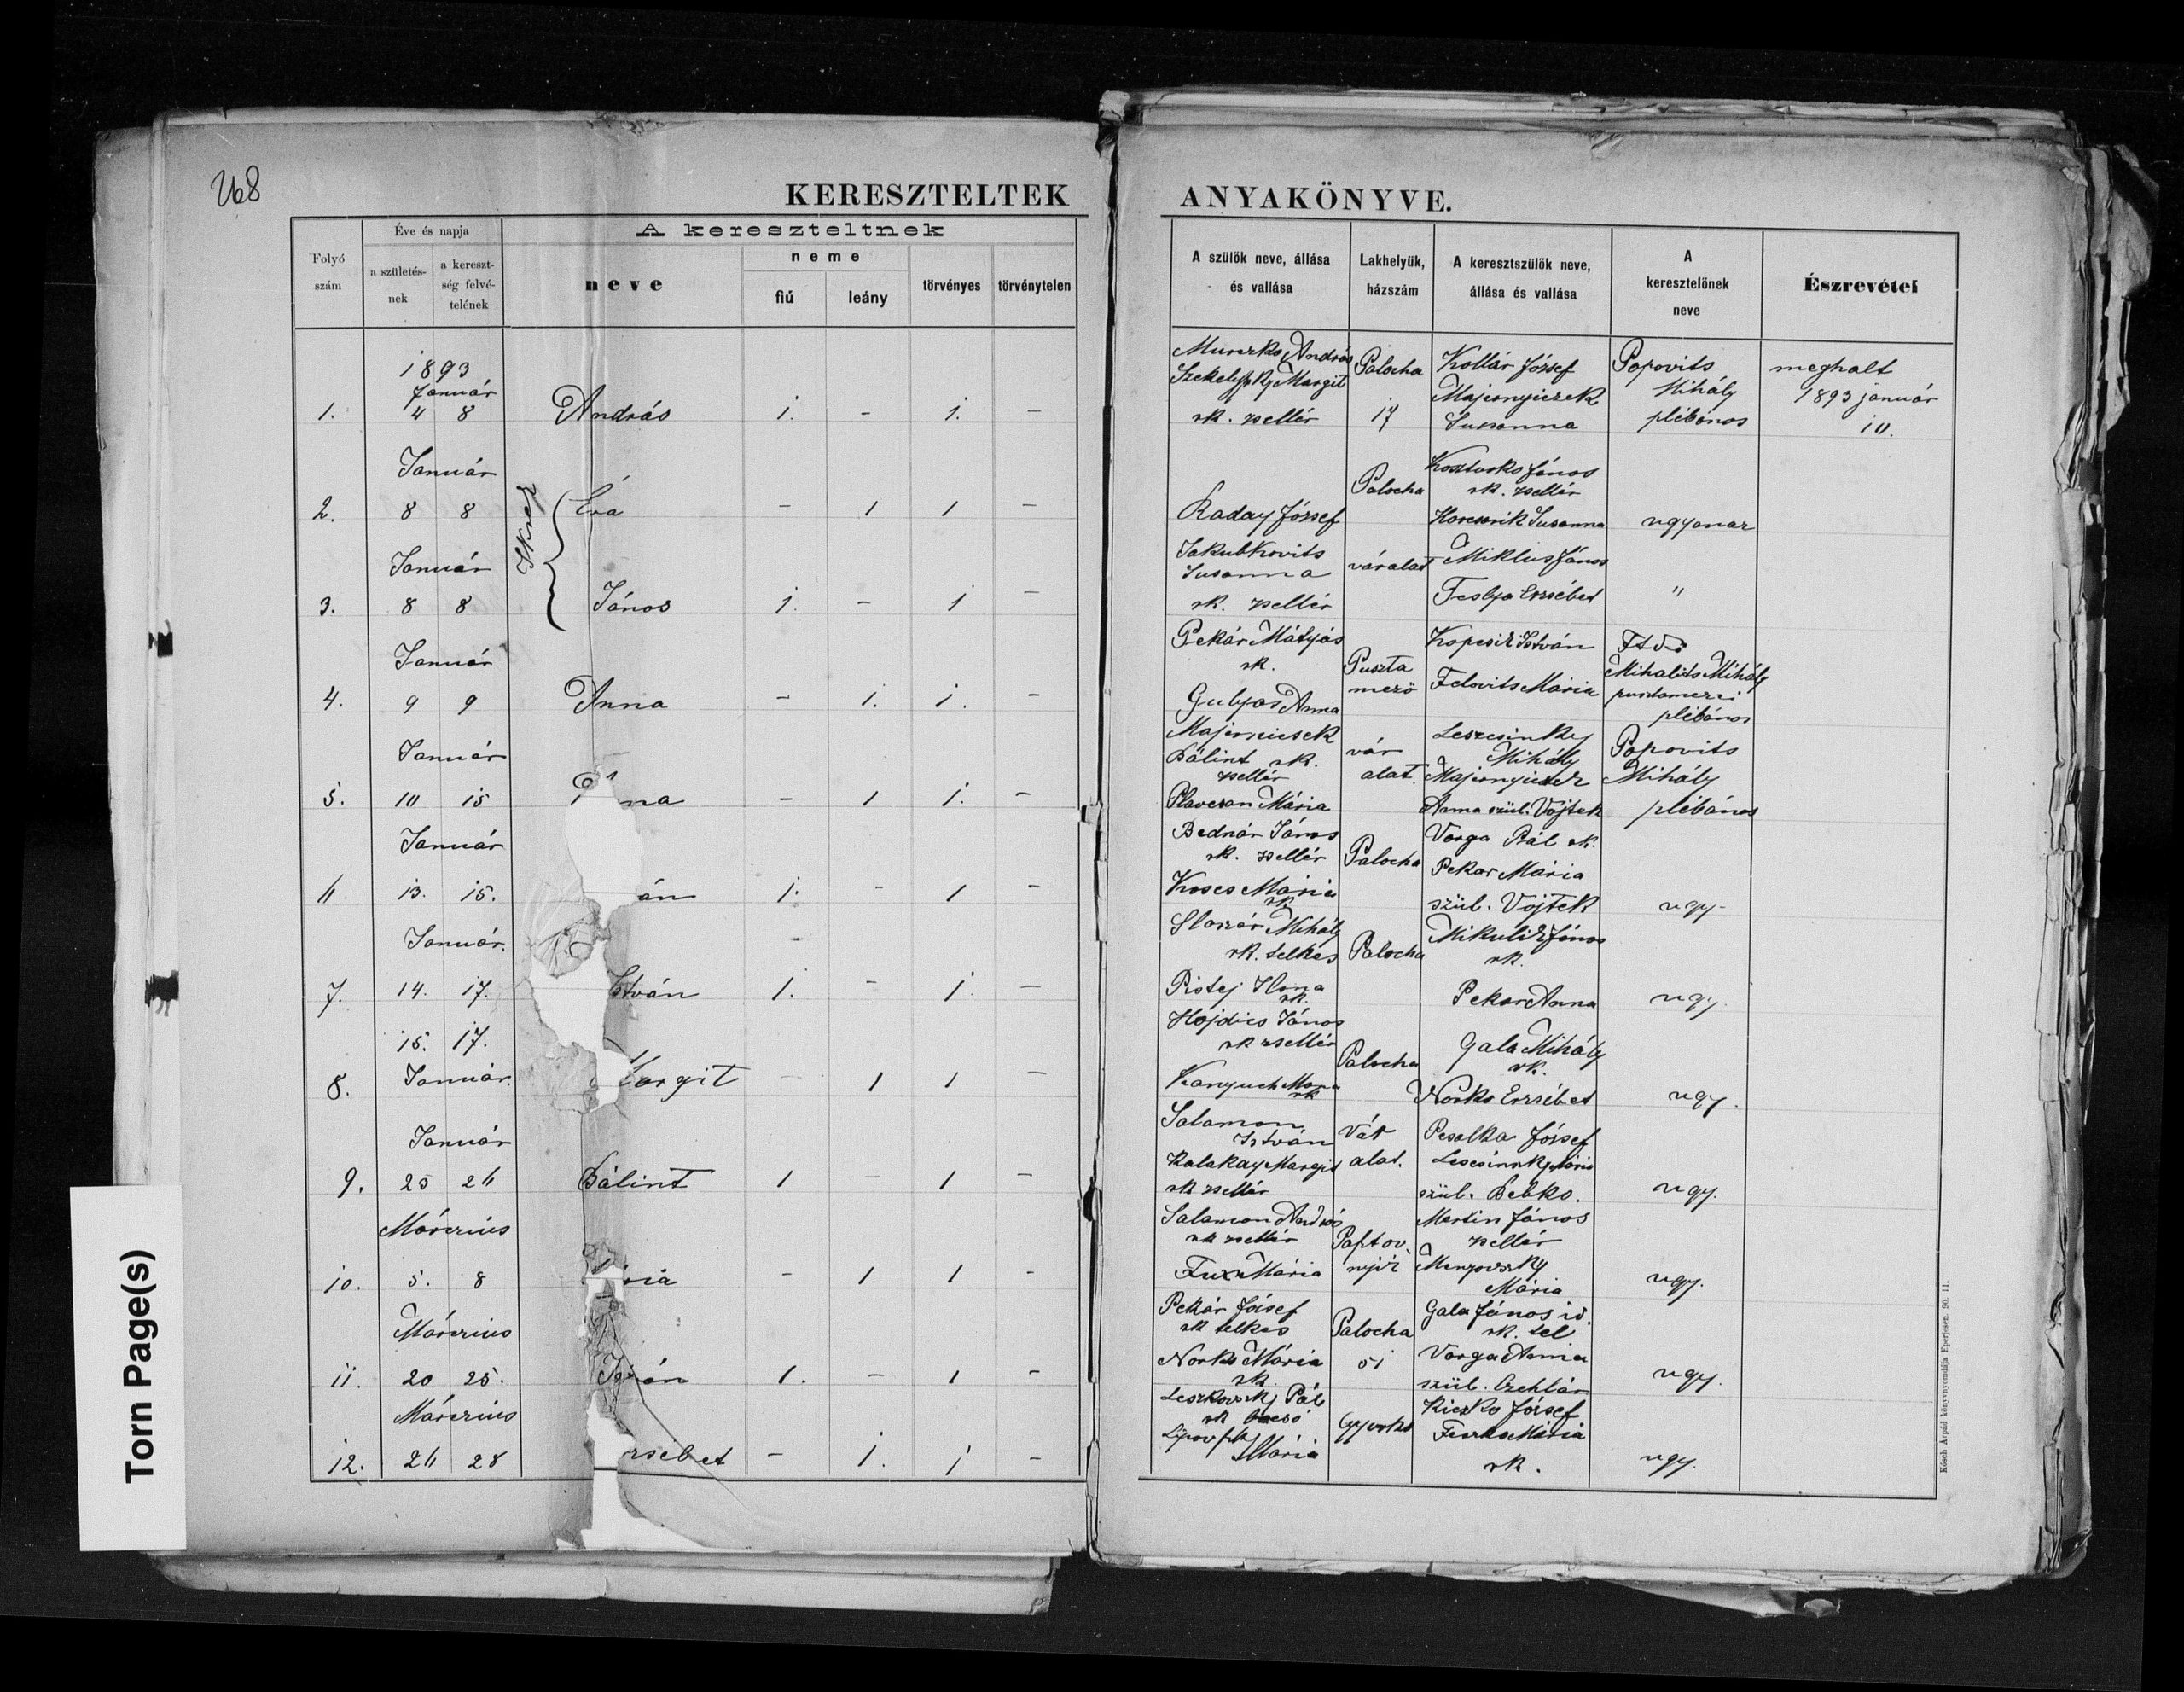 268
KERESZTELTEK ANYAKÖNYVE.
Folyó szám
Éve és napja
a születés-nek
a kereszt-ség felvé-telének
A kereszteltnek
neve
neme
fiú
leány
törvényes
törvénytelen
A szülök neve, állása és vallása
Lakhelyük, házszám
A keresztszülök neve, állása és vallása
A keresztelönek neve
Észrevétel
1893
Január
1. 4 8 András 1. - 1. -
Murczko András
Margit
rk. zsellér
Palocha
17
Kollár József
Majernyicsek
Susanna
Popovits
Mihály
plébános
meghalt
1893 január
10.
Január
2. 8 8 Éva - 1 1 -
Ikrek
Január
3. 8 8 János 1. - 1 -
Raday József
Jakubkovits
Susanna
rk. zsellér
Palocha
váralat
János
rk. zsellér
Susanna
Miklus János
Feslya Erzsébet
ugyanaz
"
Január
4. 9 9 Anna - 1. 1. -
Pekár Mátyás
rk.
Gulyas Anna
Puszta
mező
Kopcsik István
Fedovits Mária
Mihalits Mihály
plébános
Január
5. 10 15 na - 1 1. -
Majernicsek
Bálint rk.
zsellér
Plavcsan Mária
vár
alat.
Lescsinsky
Mihály
Majernyicsek
Anna szül. Vojtek
Popovits
Mihály
plébános
Január
6 13. 15. án 1. - 1 -
Bednár János
rk. zsellér
Koscs Mária
rk.
Palocha
Varga Pál rk.
Pekar Mária
szül. Vojtek
ugy-
Január.
7. 14. 17. István 1. - 1. -
Mihály
rk. telkes
Pistej Ilona
rk.
Palocha
Mikulik János
rk.
Pekar Anna
ugy.
15. 17.
8. Január. Margit - 1 1 -
Hojdics János
rk zsellér
Kanyuch
rk
Palocha
Gala Mihály
rk.
Norko Erzsébet
ugy.
Január
9. 25 26 Bálint 1 - 1 -
Salamon
István
Kalakay Margit
rk zsellér
Vár
alat.
Pesalka József
szül. Bebko.
ugy.
Márczius
10. 5. 8 ria - 1 1 -
Salamon András
rk zsellér
Fux Mária
Martin János
zsellér
Mária
ugy.
Márczius
11. 20 25. István 1. - 1 -
Pekár József
rk telkes
Norko Mária
rk.
Palocha
51
Gala János id.
rk. tel
Varga Anna
szül.
ugy.
Márczius
12. 26 28 rsébet - 1. 1 -
Leszkovszky Pál
rk
Mária
József
Mária
rk.
ugy.
Kósch Árpád könyvnyomdája Eperjesen. 90. 11.
Torn Page(s)